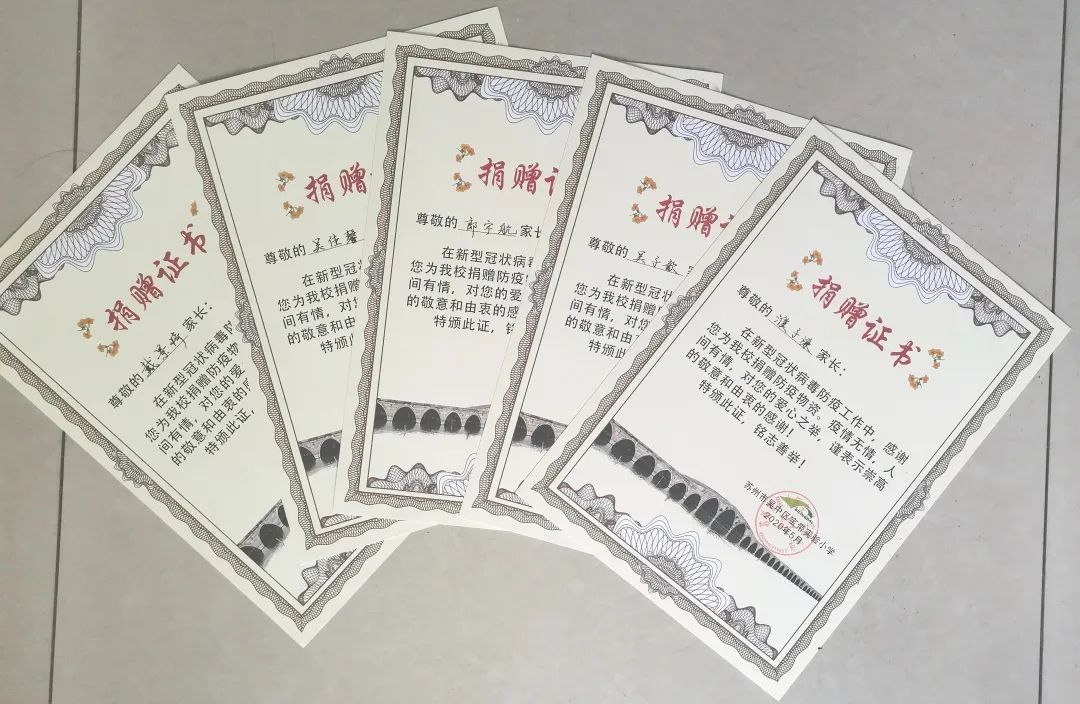 捐赠证书
尊敬的 家长：
在新型冠状病毒防
您为我校捐赠防疫物
间有情，对您的爱
的敬意和由衷的感
特颁此证，
捐赠
尊敬的
在新型冠
您为我校捐
间有情，对
的敬意和由
特颁
捐赠证
尊敬的 郭宇航 家长
在新型冠状病毒
您为我校捐赠防疫
间有情，对您的爱
的敬意和由衷的感
特颁此证，铭
捐赠证
尊敬的
在新型冠状
您为我校捐赠
间有情，对您
的敬意和由衷
特颁此证
捐赠证书
尊敬的 家长：
在新型冠状病毒防疫工作中，感谢
您为我校捐赠防疫物资。疫情无情，人
间有情，对您的爱心之举，谨表示崇高
的敬意和由衷的感谢！
特颁此证，铭志善举！
苏州市吴中区宝带实验小学
2020年5月